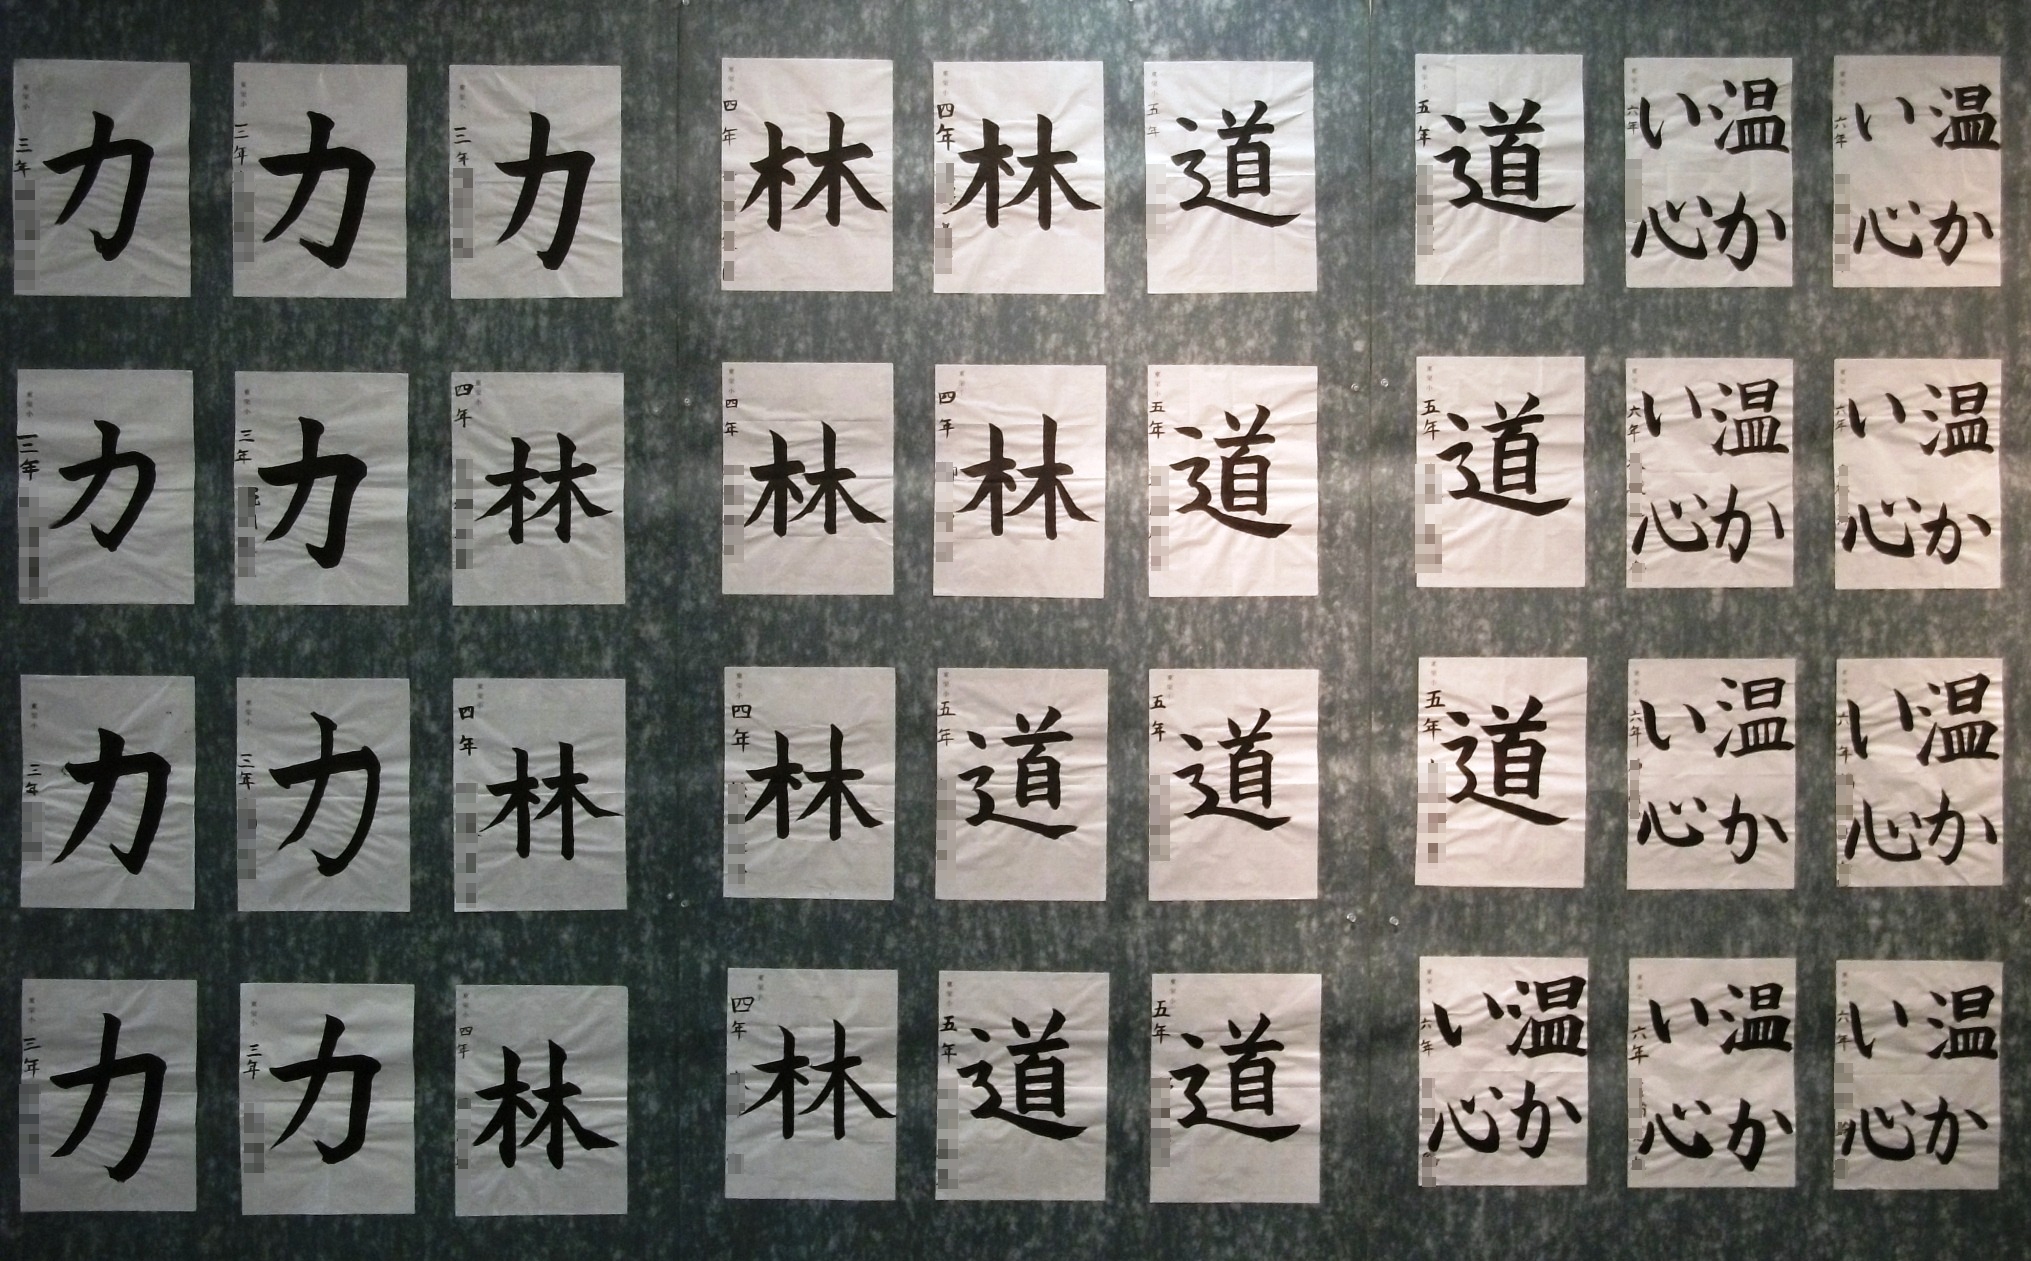 力
三年
力
三年
力
三年
林
四年
林
四年
道
五年
道
五年
温か
い心
六年
温か
い心
六年
力
三年
力
三年
林
四年
林
四年
林
四年
道
五年
道
五年
温か
い心
六年
温か
い心
六年
力
三年
力
三年
林
四年
林
四年
道
五年
道
五年
道
五年
温か
い心
六年
温か
い心
六年
力
三年
力
三年
林
四年
林
四年
道
五年
道
五年
温か
い心
六年
温か
い心
六年
温か
い心
六年